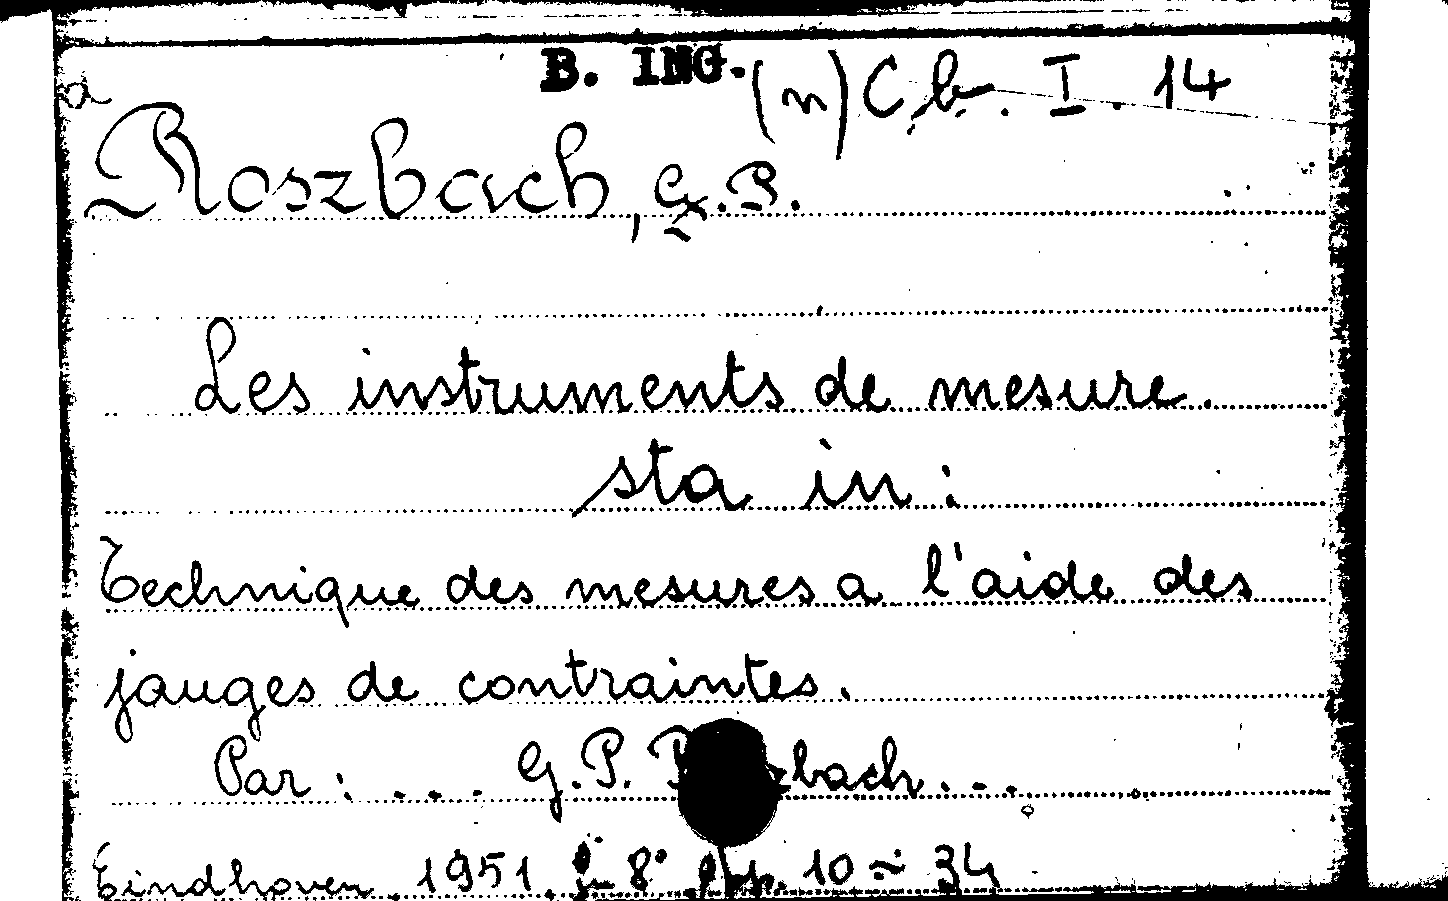 B. ING. (n) C.b. I. 14
a
Roszbach, G.P.
Les instruments de mesure.
sta in:
Technique des mesures a l'aide des
jauges de contraintes.
Par: ... G.P. ...
Eindhoven. 1951. in 8° pp. 10 ÷ 34